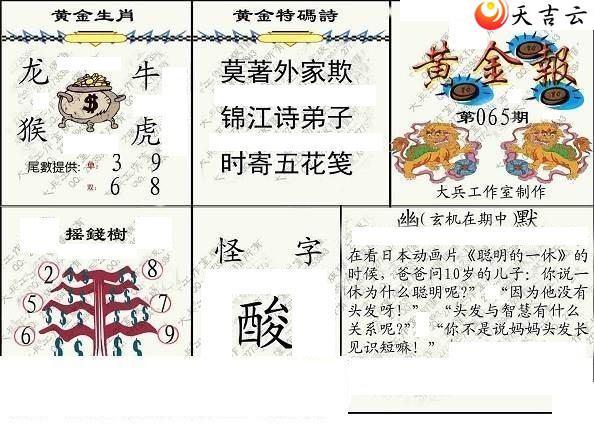 天吉云
黄金生肖
龙 牛
猴 虎
$
尾數提供: 单: 3 9
双: 6 8
黄金特碼詩
莫著外家欺
锦江诗弟子
时寄五花笺
黄金報
第065期
大兵工作室制作
摇錢樹
2 8
5 7
6 9
怪字
酸
幽(玄机在期中)默
在看日本动画片《聪明的一休》的
时候，爸爸问10岁的儿子：你说一
休为什么聪明呢?” “因为他没有
头发呀！” “头发与智慧有什么
关系呢?” “你不是说妈妈头发长
见识短嘛！”